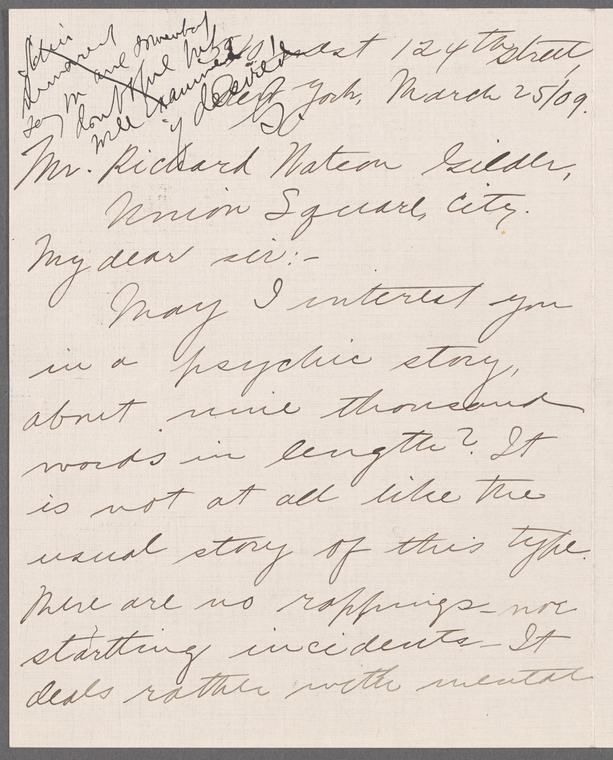 say
doubtful but
will examine
if desired
West 124th Street,
New York, March 25/09.
Mr. Richard Watson Gilder,
Union Square, City.
My dear sir:-
May I interest you
in a psychic story,
about nine thousand
words in length? It
is not at all like the
usual story of this type.
There are no rappings - nor
startling incidents - It
deals rather with mental